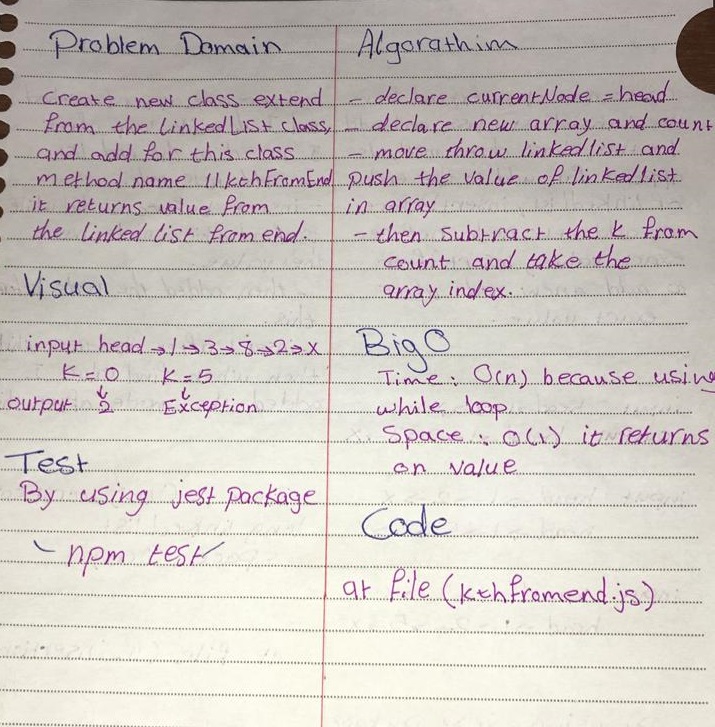 Problem Domain
Create new class extend
from the linkedList class,
and add for this class
method name llkthFromEnd
it returns value from
the linked list from end.
Visual
input head → 1 → 3 → 8 → 2 → x
K = 0 K = 5
output 2 Exception
Test
By using jest package
- npm test
Algorathim
- declare currentNode = head
- declare new array and count
- move throw linkedlist and
push the value of linkedlist
in array
- then subtract the k from
count and take the
array index.
Big O
Time : O(n) because using
while loop
Space : O(1) it returns
on value
Code
at file (kthfromend.js)